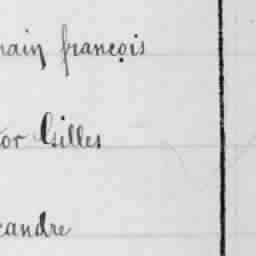 main françois
tor Gilles
eandre